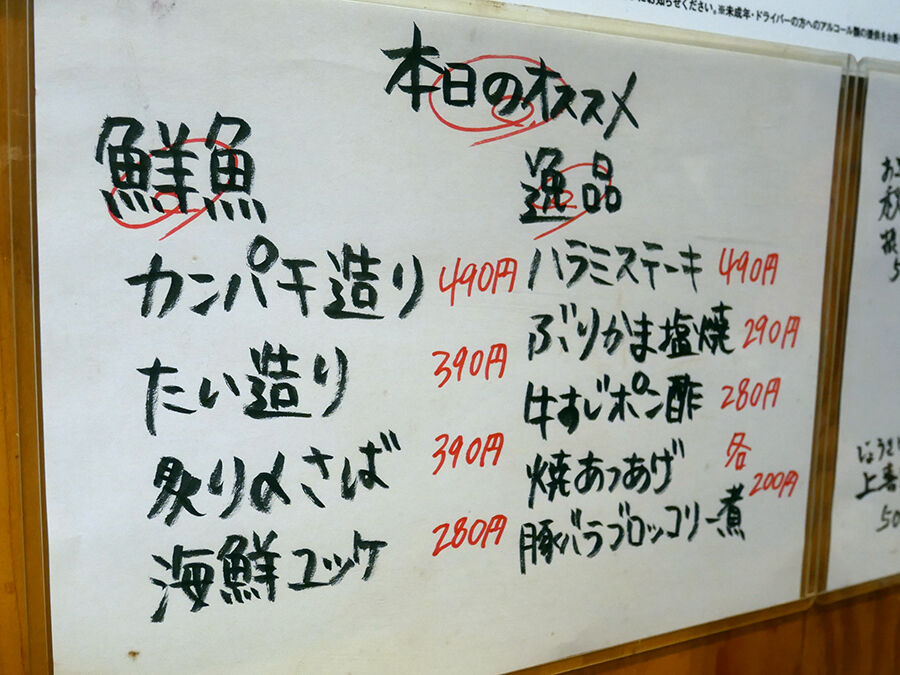 にお知らせください。※未成年・ドライバーの方へのアルコール類の提供をお断
本日のオススメ
鮮魚
カンパチ造り 490円
たい造り 390円
炙り〆さば 390円
海鮮ユッケ 280円
逸品
ハラミステーキ 490円
ぶりかま塩焼 290円
牛すじポン酢 280円
焼あつあげ 各
200円
豚バラブロッコリー煮